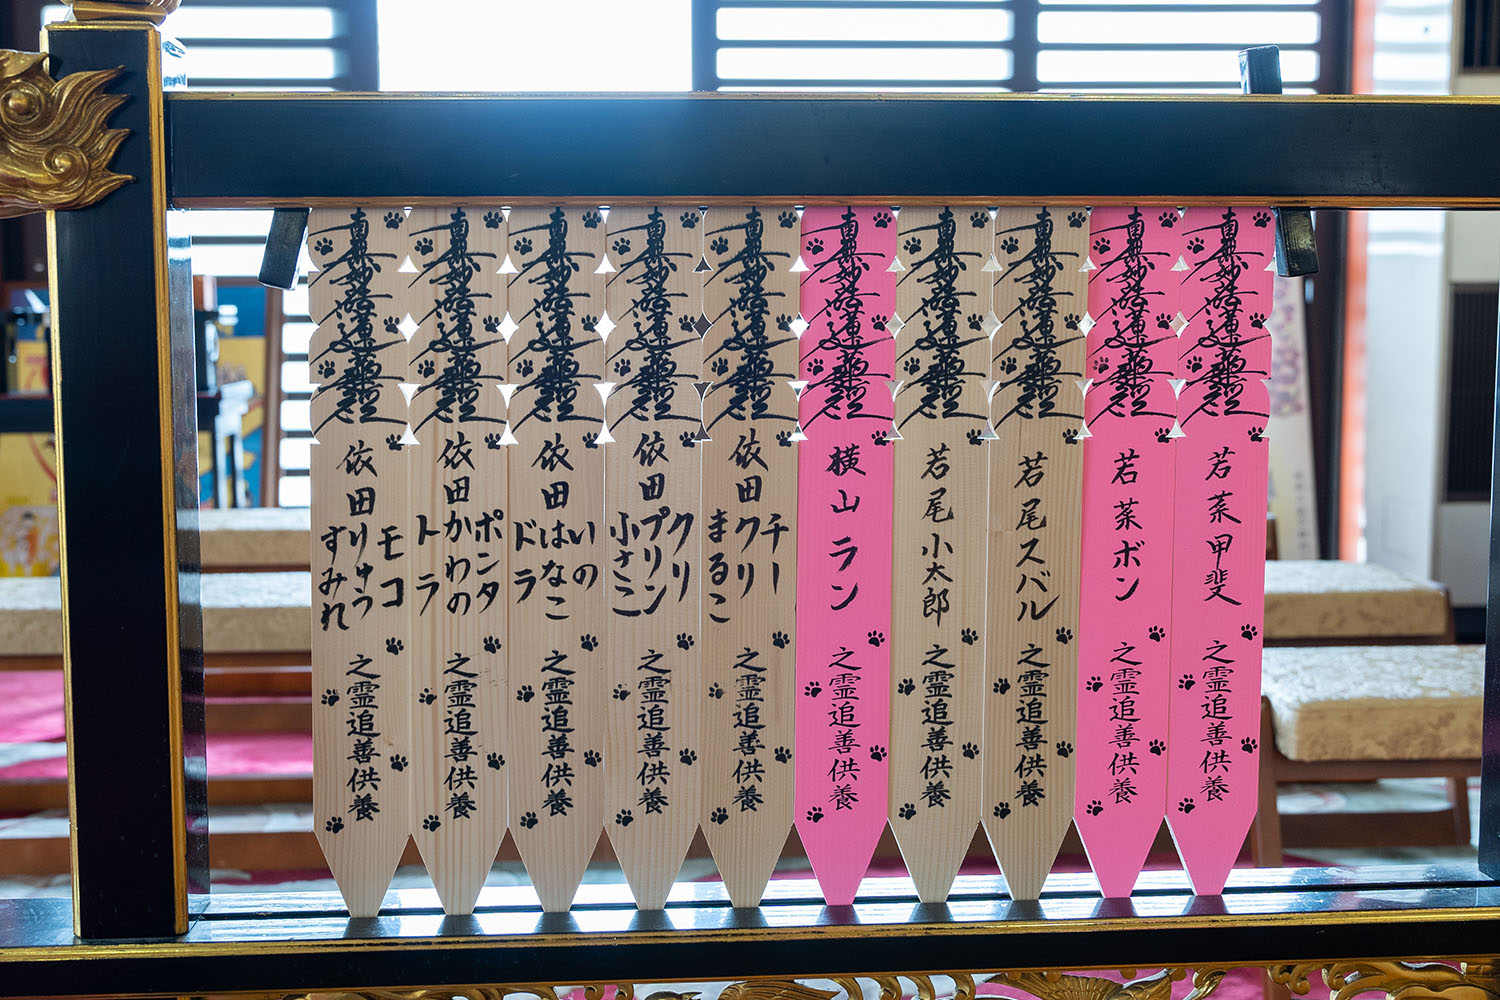 南無妙法蓮華經 若菜甲斐 之霊追善供養
南無妙法蓮華經 若菜ボン 之霊追善供養
南無妙法蓮華經 若尾スバル 之霊追善供養
南無妙法蓮華經 若尾小太郎 之霊追善供養
南無妙法蓮華經 横山ラン 之霊追善供養
南無妙法蓮華經 依田 チー クリ まるこ 之霊追善供養
南無妙法蓮華經 依田 クリ プリン 小さこ 之霊追善供養
南無妙法蓮華經 依田 いの はなこ ドラ 之霊追善供養
南無妙法蓮華經 依田 ポンタ かわの トラ 之霊追善供養
南無妙法蓮華經 依田 モコ りゅう すみれ 之霊追善供養